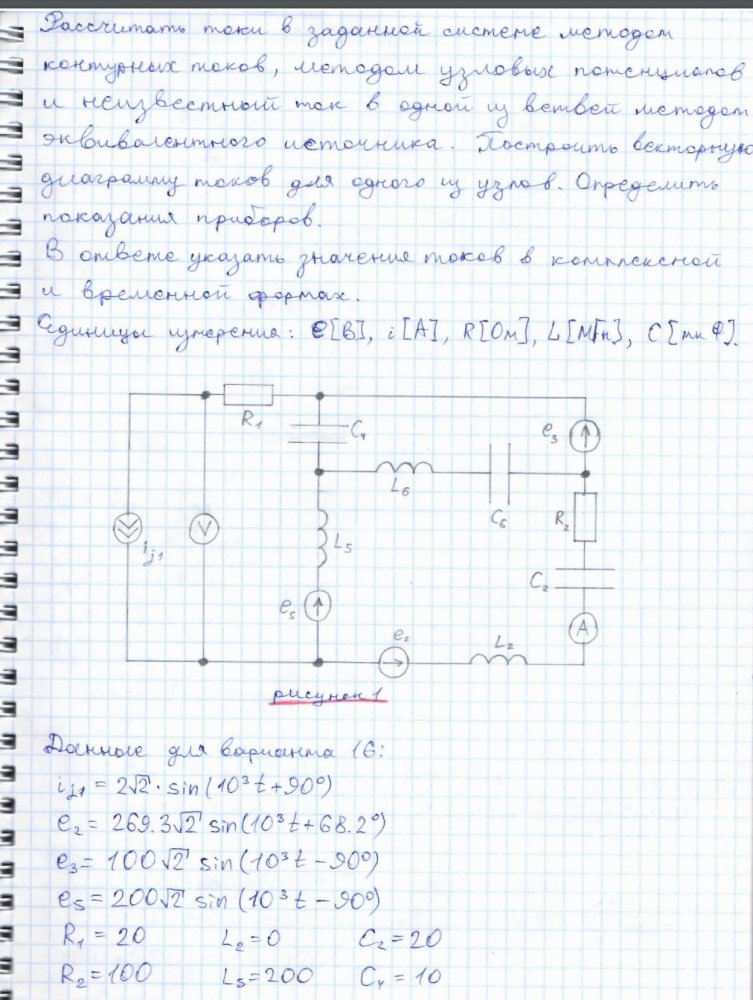 Рассчитать токи в заданной системе методом
контурных токов, методом узловых потенциалов
и неизвестный ток в одной из ветвей методом
эквивалентного источника. Построить векторную
диаграмму токов для одного из узлов. Определить
показания приборов.
В ответе указать значения токов в комплексной
и временной формах.
Единицы измерения: e[В], i[А], R[Ом], L[мГн], C[мкФ].
R₁
C₄
e₃
L₆
C₆
R₂
i_j1
V
L₅
C₂
e₅
A
e₂
L₂
рисунок 1
Данные для варианта 16:
i_j1 = 2√2 · sin(10³t+90°)
e₂ = 269.3√2 sin(10³t+68.2°)
e₃ = 100√2 sin(10³t-90°)
e₅ = 200√2 sin(10³t-90°)
R₁ = 20 L₂ = 0 C₂ = 20
R₂ = 100 L₅ = 200 C₄ = 10